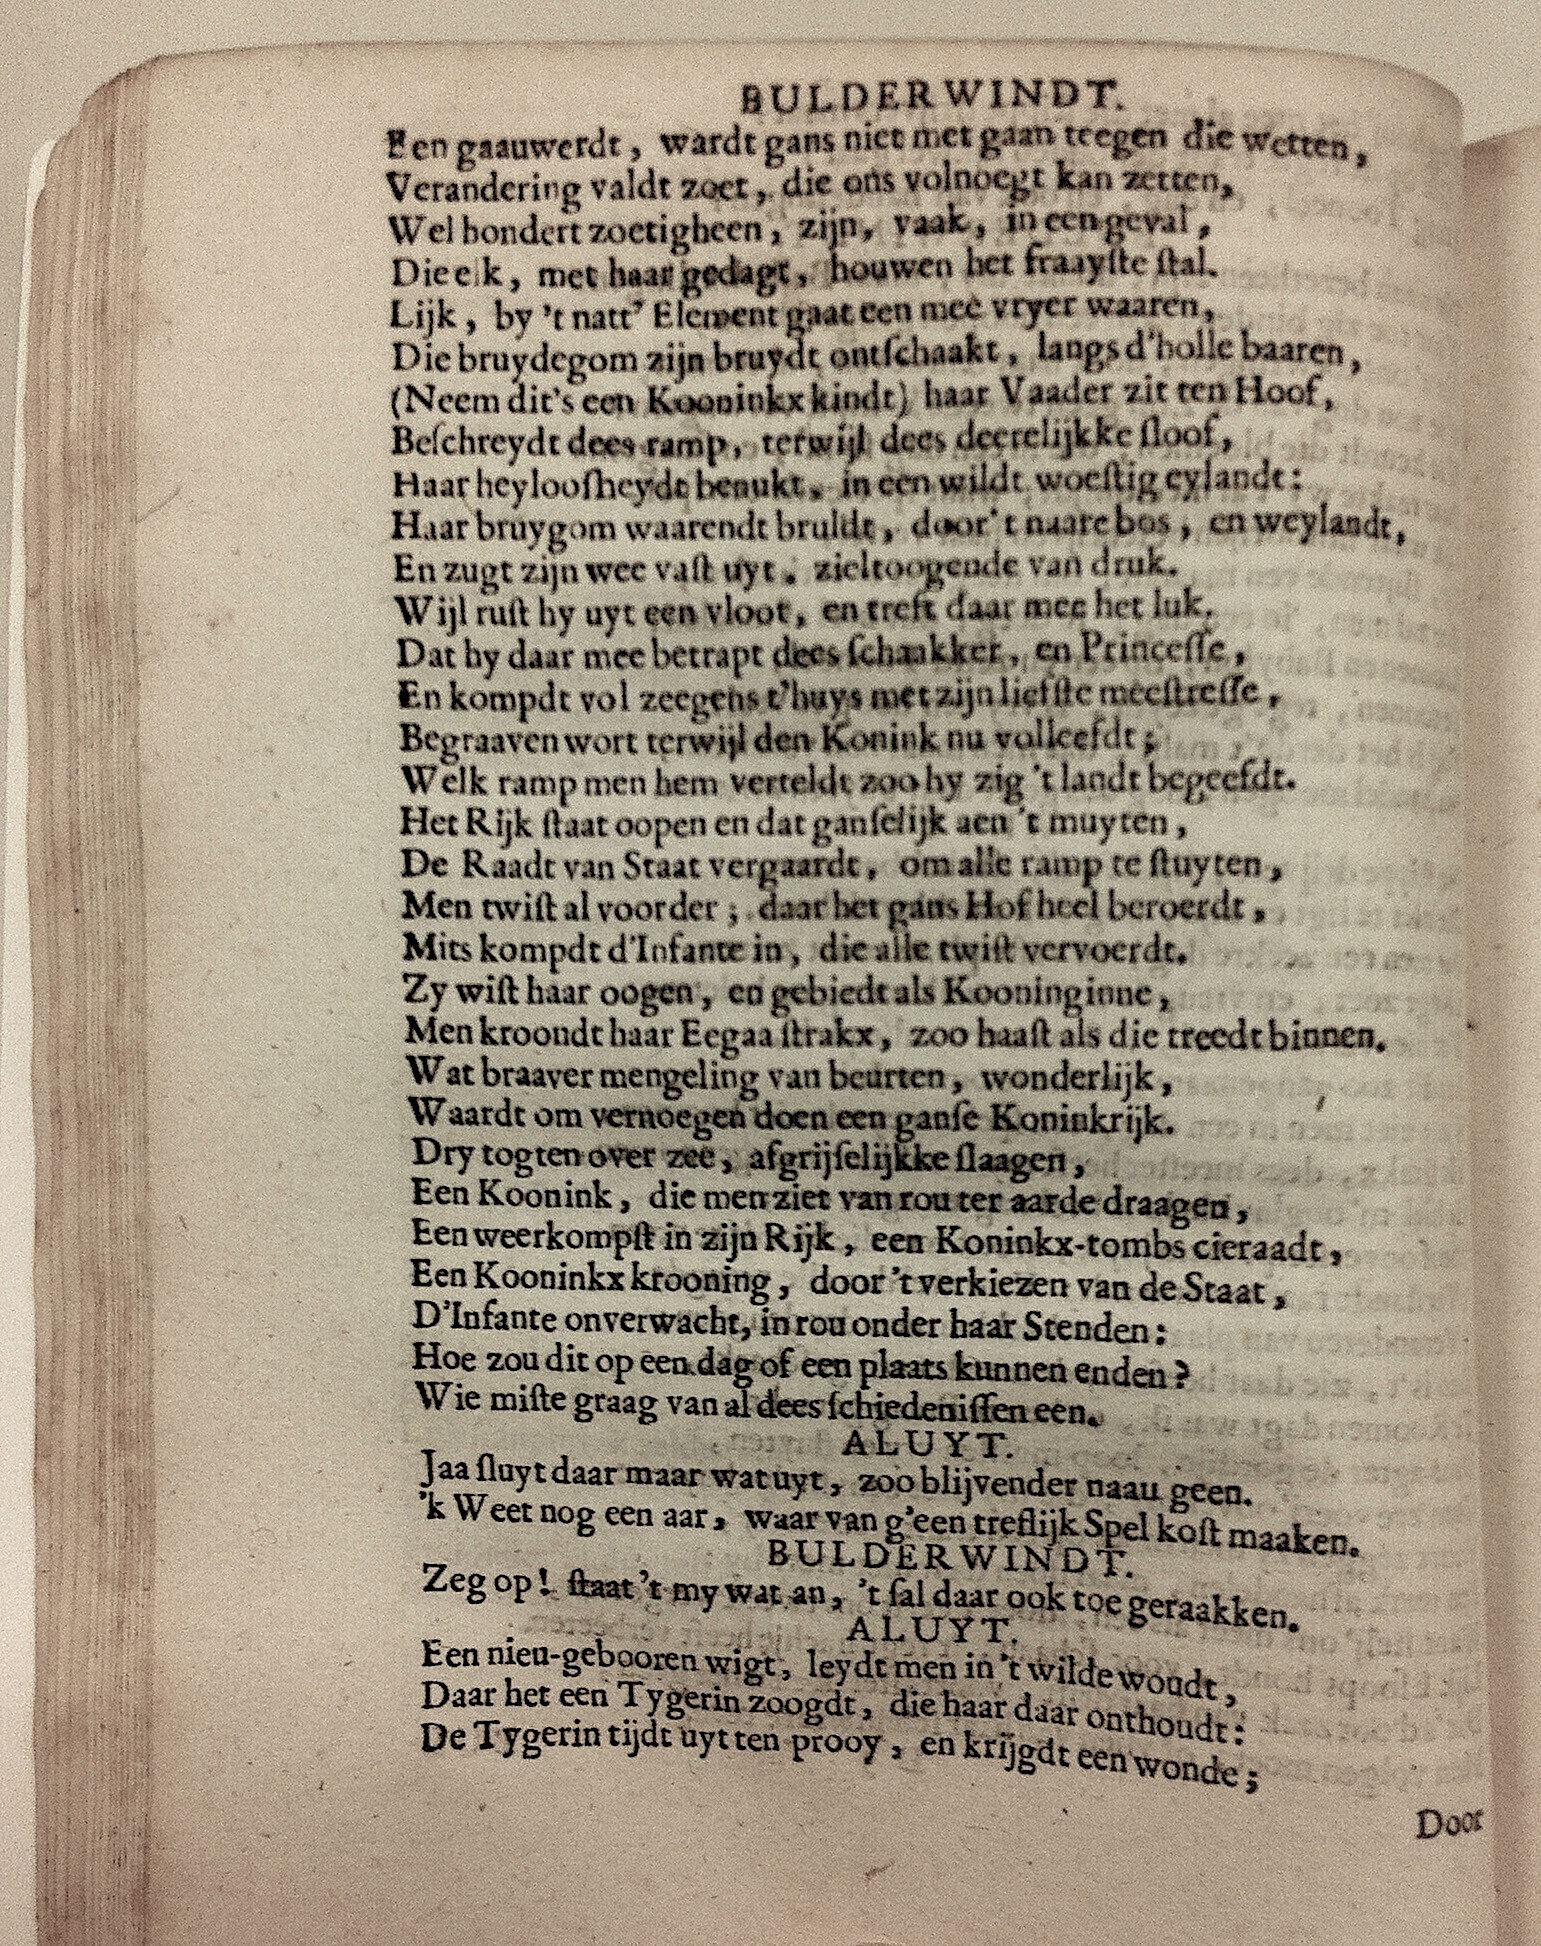 BULDERWINDT.
Een gaauwerdt, wardt gans niet met gaan teegen die wetten,
Verandering valdt zoet, die ons volnoegt kan zetten,
Wel hondert zoetigheen, zijn, vaak, in een geval,
Die elk, met haar gedagt, houwen het fraayſte ſtal.
Lijk, by 't natt' Element gaat een meê vryer waaren,
Die bruydegom zijn bruydt ontſchaakt, langs d'holle baaren,
(Neem dit's een Kooninkx kindt) haar Vaader zit ten Hoof,
Beſchreydt dees ramp, terwijl dees deerelijkke ſloof,
Haar heylooſheydt benukt, in een wildt woeſtig eylandt:
Haar bruygom waarendt bruldt, door't naare bos, en weylandt,
En zugt zijn wee vaſt uyt, zieltoogende van druk.
Wijl ruſt hy uyt een vloot, en treft daar mee het luk,
Dat hy daar mee betrapt dees ſchaakker, en Princeſſe,
En kompdt vol zeegens t'huys met zijn liefſte meeſtreſſe,
Begraaven wort terwijl den Konink nu volleefdt;
Welk ramp men hem verteldt zoo hy zig 't landt begeefdt.
Het Rijk ſtaat oopen en dat ganſelijk aen 't muyten,
De Raadt van Staat vergaardt, om alle ramp te ſtuyten,
Men twiſt al voorder; daar het gans Hof heel beroerdt,
Mits kompdt d'Infante in, die alle twiſt vervoerdt.
Zy wiſt haar oogen, en gebiedt als Kooninginne,
Men kroondt haar Eegaa ſtrakx, zoo haaſt als die treedt binnen.
Wat braaver mengeling van beurten, wonderlijk,
Waardt om vernoegen doen een ganſe Koninkrijk.
Dry togten over zee, afgrijſelijkke ſlaagen,
Een Koonink, die men ziet van rou ter aarde draagen,
Een weerkompſt in zijn Rijk, een Koninkx-tombs cieraadt,
Een Kooninkx krooning, door 't verkiezen van de Staat,
D'Infante onverwacht, in rou onder haar Stenden:
Hoe zou dit op een dag of een plaats kunnen enden?
Wie miſte graag van al dees ſchiedeniſſen een.
ALUYT.
Jaa ſluyt daar maar wat uyt, zoo blijvender naau geen.
'k Weet nog een aar, waar van g'een treflijk Spel koſt maaken.
BULDERWINDT.
Zeg op! ſtaat 't my wat an, 't ſal daar ook toe geraakken.
ALUYT.
Een nieu-gebooren wigt, leydt men in 't wilde woudt,
Daar het een Tygerin zoogdt, die haar daar onthoudt:
De Tygerin tijdt uyt ten prooy, en krijgdt een wonde;
Door